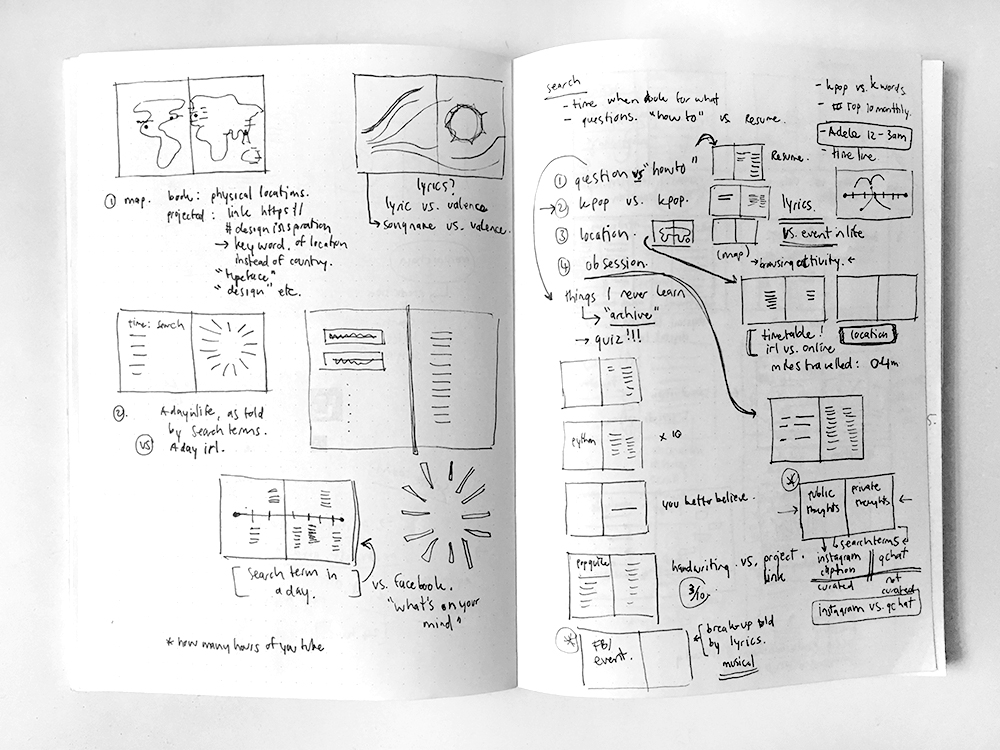 ① map. book: physical locations.
projected: link https://
#designinspiration
→ key word of location
instead of country.
"typeface"
"design" etc.
lyrics?
lyric vs. valence
→ songname vs. valence.
time: search
②. A day in life, as told
by search terms.
VS A day irl.
[search term in
a day.]
vs. facebook.
"what's on your
mind"
* how many hours of youtube
search
- time when look for what
- questions. "how to" vs Resume.
- kpop vs. k words.
- Top 10 monthly.
- Adele 12-3am
- timeline
① question vs "how to"
Resume.
→ ② kpop vs. kpop.
lyrics.
vs. event in life
③ location.
(map)
④ obsession.
→ browsing activity. ←
things I never learn
→ "archive"
→ quiz!!!
timetable!
irl vs. online
location
miles travelled: 04m
python
× 10
you better believe.
*
public
thoughts
private
thoughts
→ search terms ←
instagram
caption
gchat
curated
not
curated
instagram vs. gchat
pop quiz
handwriting vs, project.
link
3/10
*
FB/
event.
break-up told
by lyrics.
musical